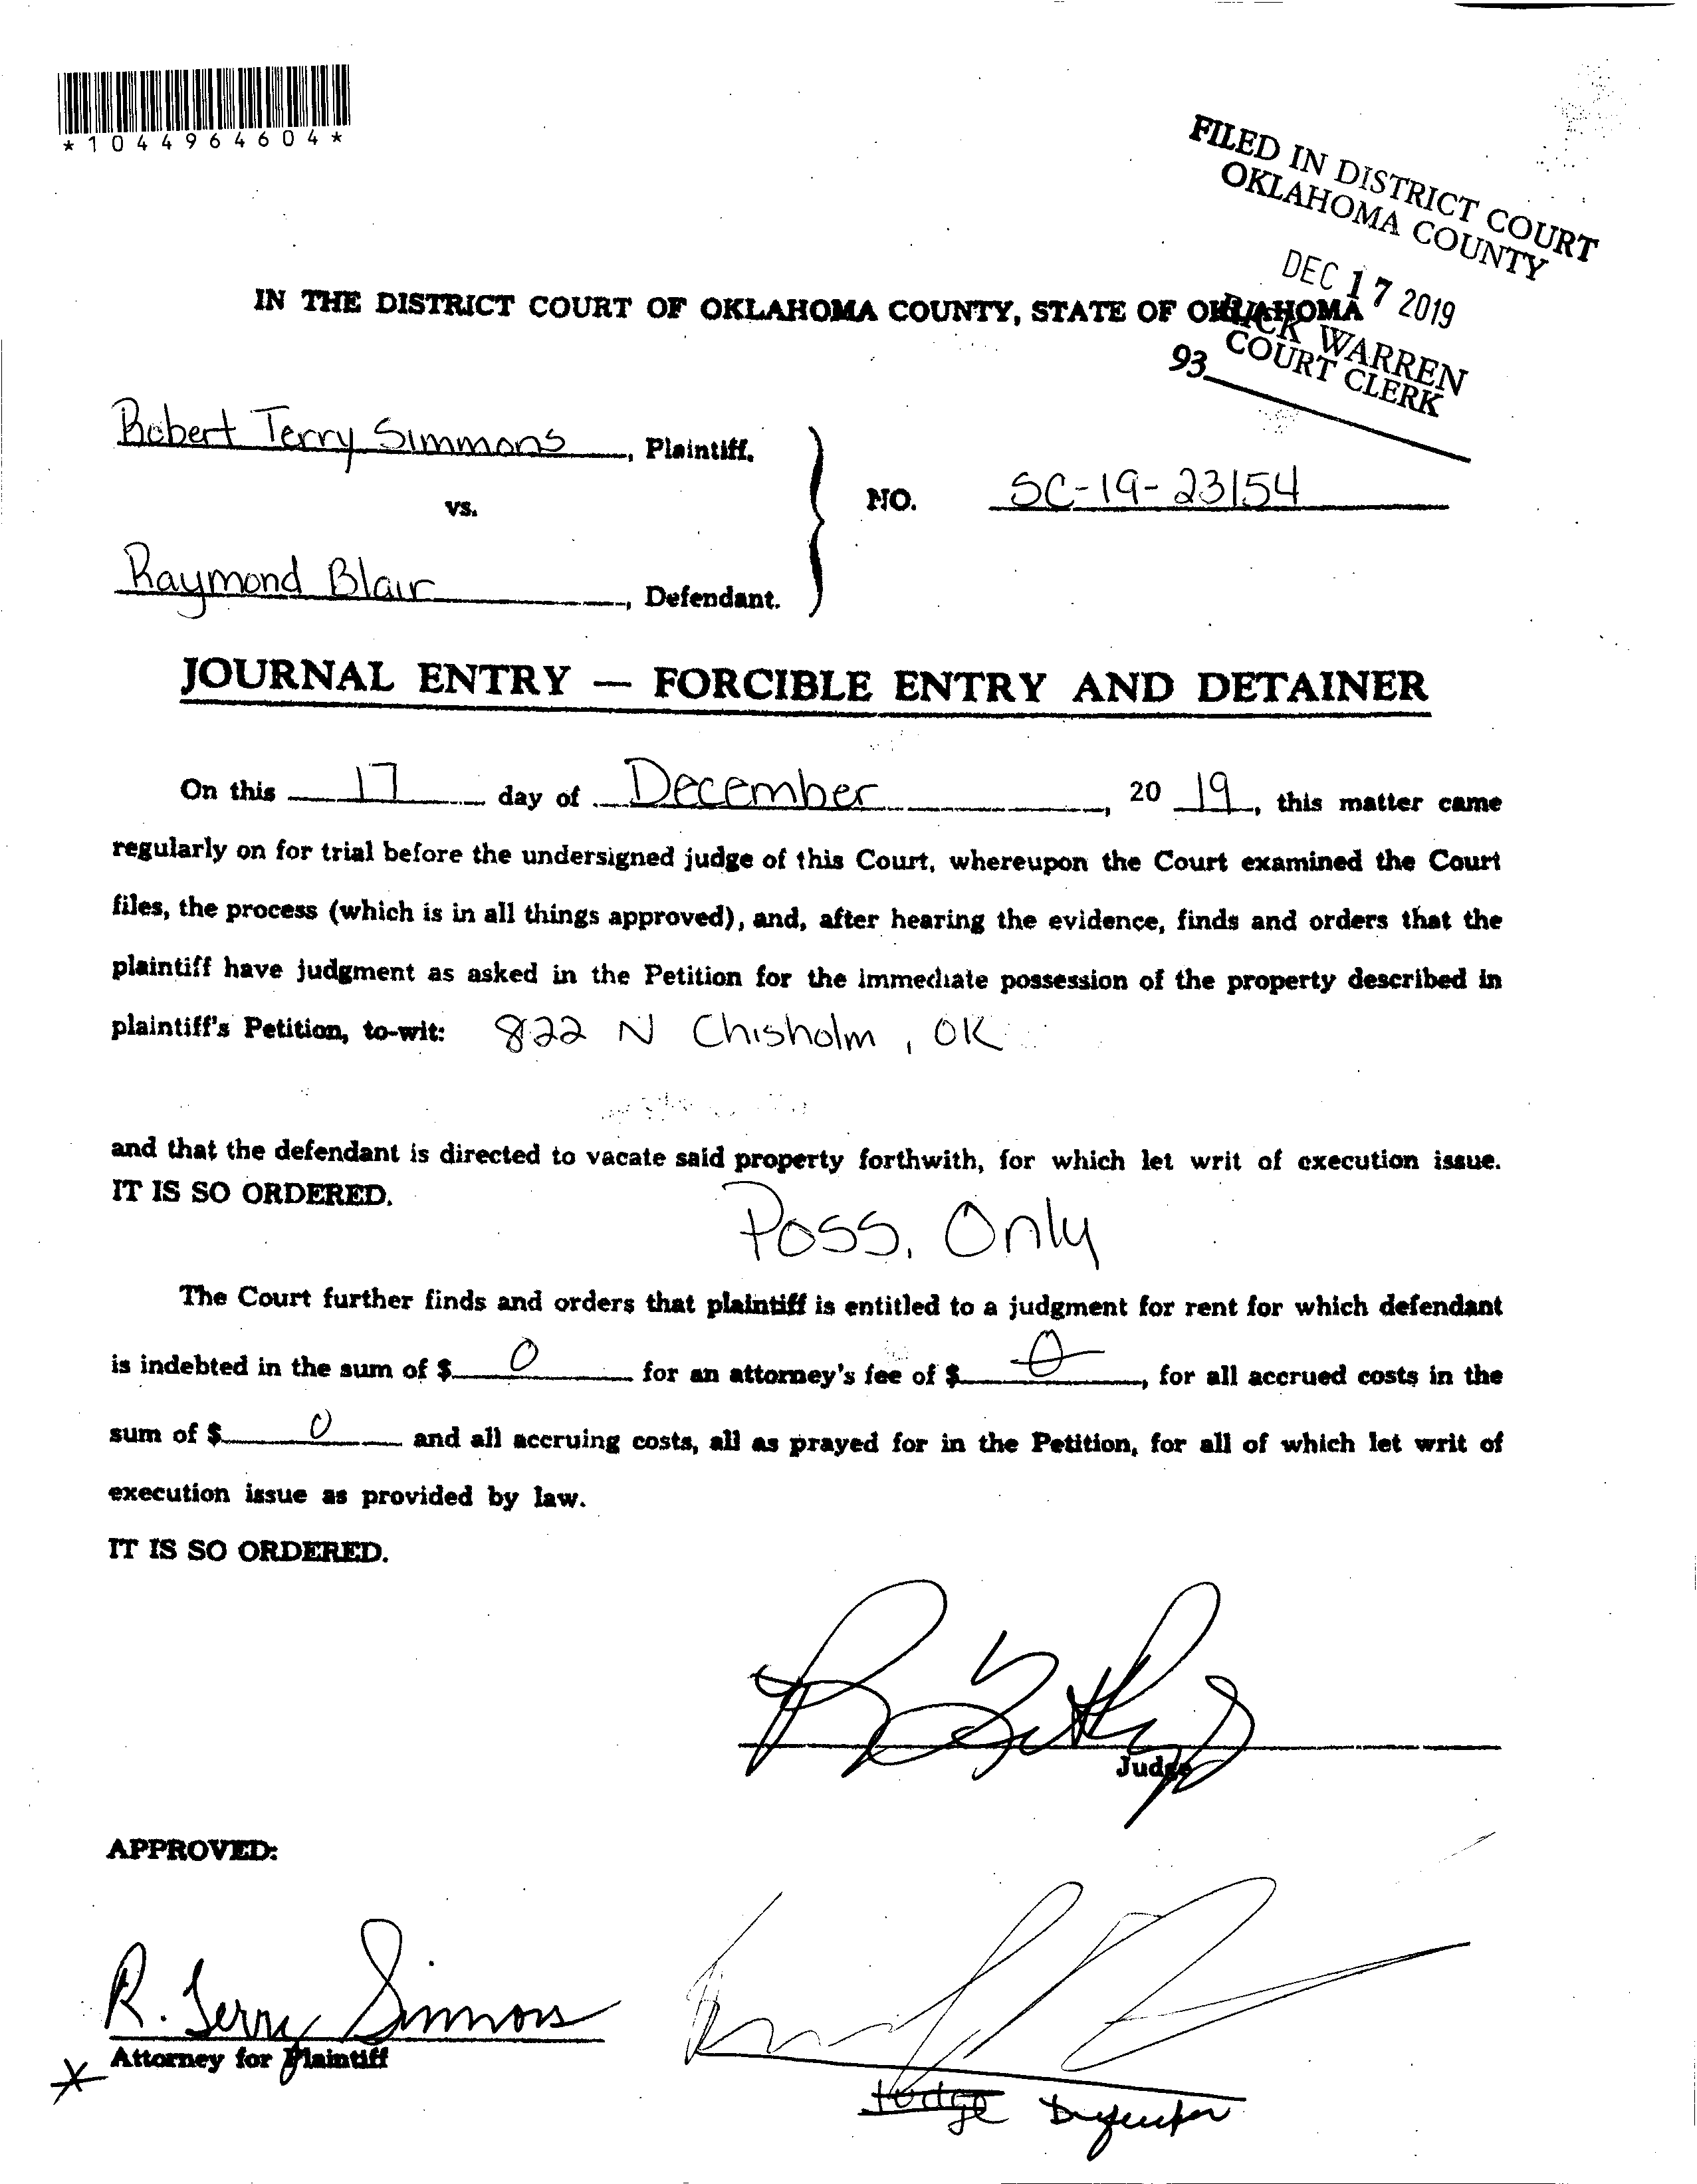 *1044964604*
FILED IN DISTRICT COURT
OKLAHOMA COUNTY
DEC 17 2019
RICK WARREN
COURT CLERK
93
IN THE DISTRICT COURT OF OKLAHOMA COUNTY, STATE OF OKLAHOMA
Robert Terry Simmons, Plaintiff,
vs.
NO. SC-19-23154
Raymond Blair, Defendant.
JOURNAL ENTRY — FORCIBLE ENTRY AND DETAINER
On this 17 day of December, 20 19, this matter came
regularly on for trial before the undersigned judge of this Court, whereupon the Court examined the Court
files, the process (which is in all things approved), and, after hearing the evidence, finds and orders that the
plaintiff have judgment as asked in the Petition for the immediate possession of the property described in
plaintiff's Petition, to-wit: 822 N Chisholm, OK
and that the defendant is directed to vacate said property forthwith, for which let writ of execution issue.
IT IS SO ORDERED.
Poss. Only
The Court further finds and orders that plaintiff is entitled to a judgment for rent for which defendant
is indebted in the sum of $ 0 for an attorney's fee of $ 0, for all accrued costs in the
sum of $ 0 and all accruing costs, all as prayed for in the Petition, for all of which let writ of
execution issue as provided by law.
IT IS SO ORDERED.
Judge
APPROVED:
R. Terry Simmons
Attorney for Plaintiff
Judge